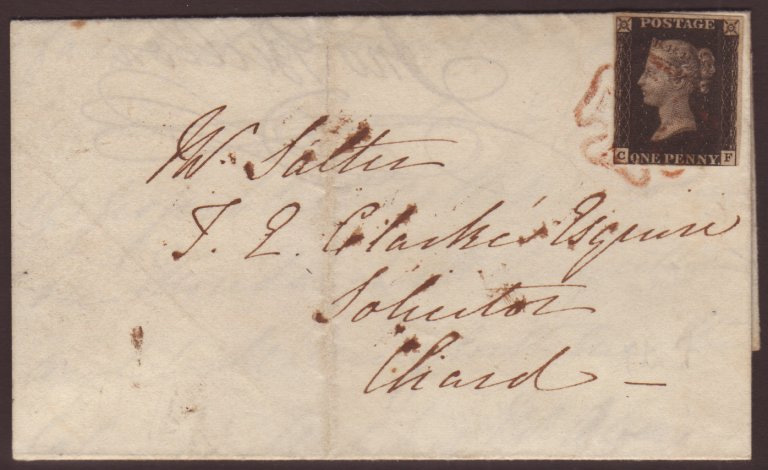 POSTAGE
C ONE PENNY F
Mr. Salter
T. E. Clarke's Esquire
Solicitor
Chard